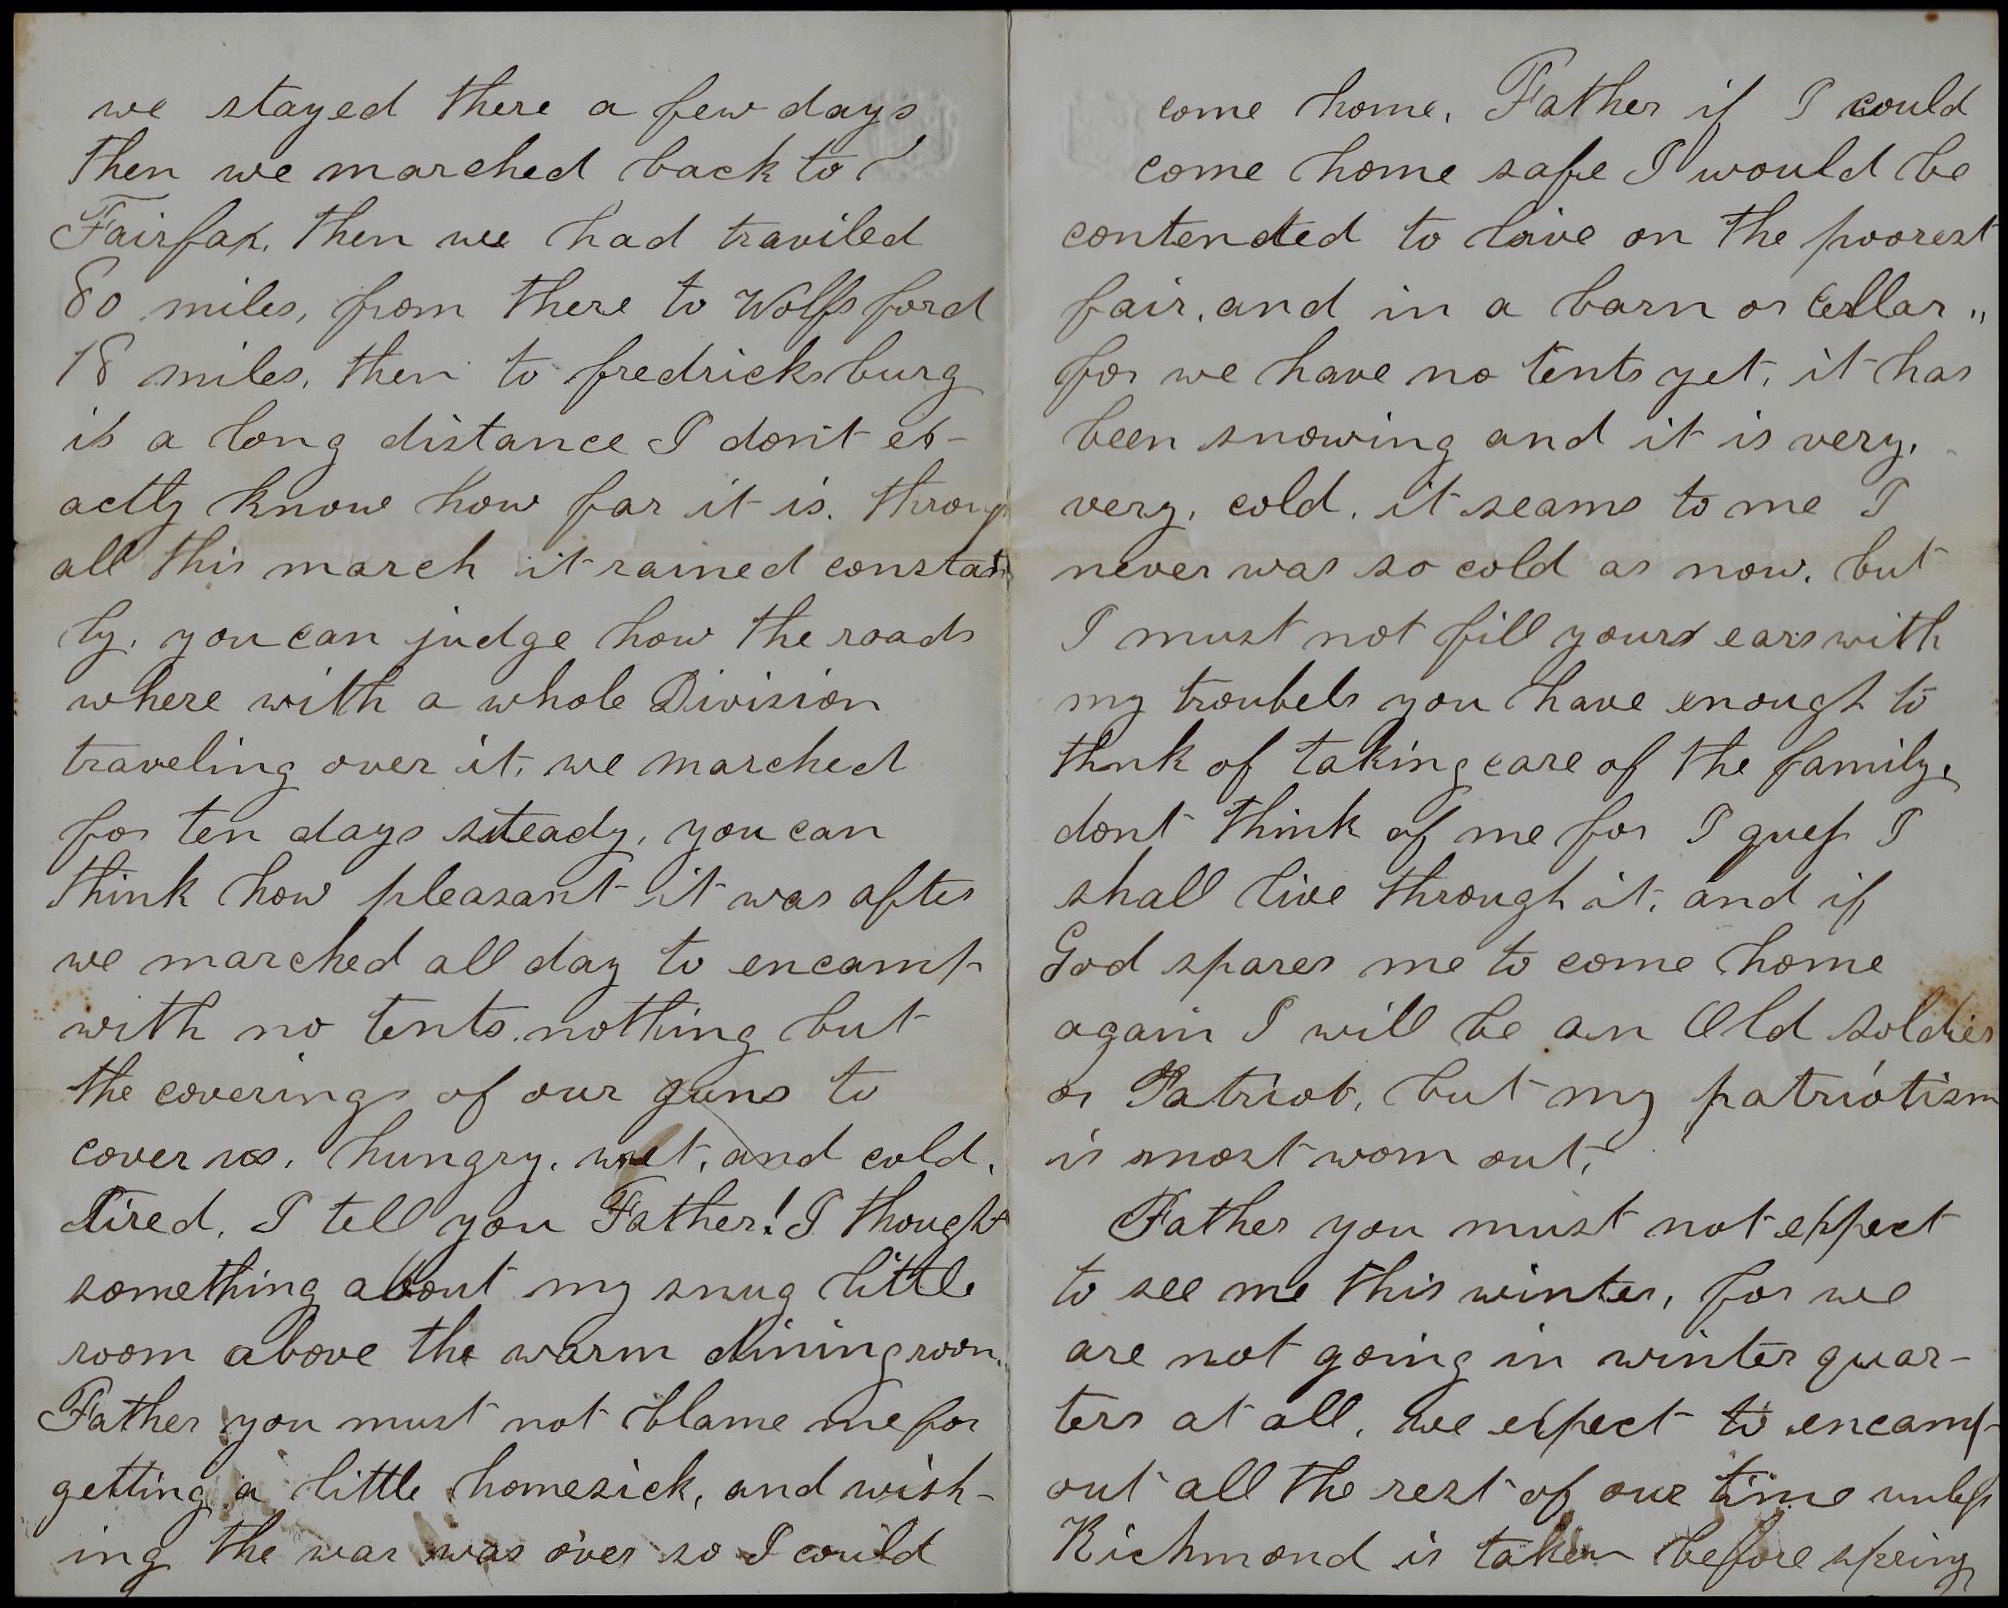 we stayed there a few days
then we marched back to
Fairfax. then we had traviled
80 miles, from there to Wolfs ford
18 miles. then to fredricksburg
is a long distance I don't ex-
actly know how far it is. throug
all this march it rained constant
ly. you can judge how the roads
where with a whole Division
traveling over it, we marched
for ten days steady. you can
think how pleasant it was after
we marched all day to encamp
with no tents. nothing but
the coverings of our guns to
cover us. hungry. wet, and cold.
tired. I tell you Father! I thought
something about my snug little
room above the warm dining room.
Father you must not blame me for
getting a little homesick, and wish-
ing the war was over so I could
come home. Father if I could
come home safe I would be
contended to live on the poorest
fair. and in a barn or Cellar "
for we have no tents yet. it has
been snowing and it is very.
very. cold. it seams to me I
never was so cold as now. but
I must not fill yours ears with
my troubels you have enough to
thnk of taking care of the family.
dont think of me for I guess I
shall live through it. and if
God spares me to come home
again I will be an Old soldier
or Patriot. but my patriotism
is most worn out.
Father you must not expect
to see me this winter, for we
are not going in winter quar-
ters at all. we expect to encamp
out all the rest of our time unless
Richmond is taken before spring